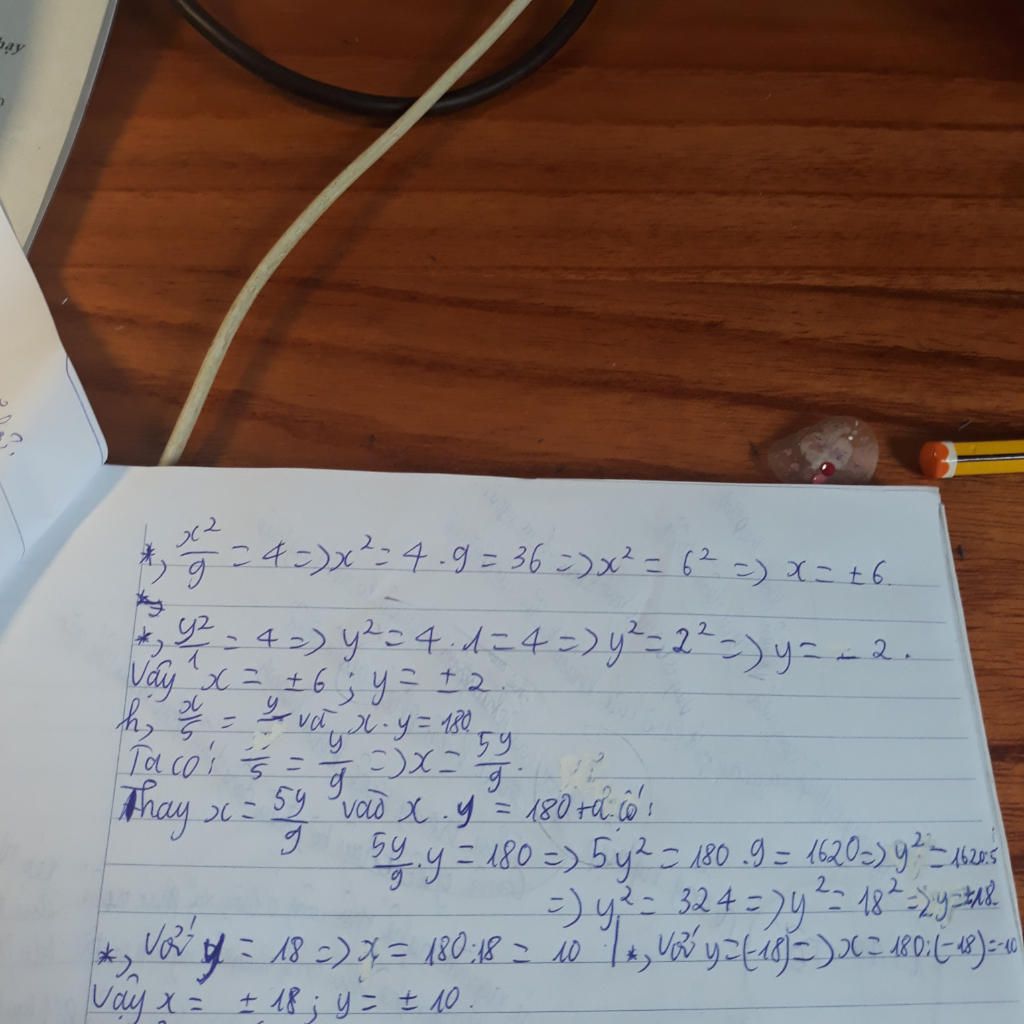 hay
*, x²/9 = 4 => x² = 4 . 9 = 36 => x² = 6² => x = ±6.
*, y²/1 = 4 => y² = 4 . 1 = 4 => y² = 2² => y = - 2 .
Vậy x = ±6 ; y = ±2.
h, x/5 = y và x . y = 180
Ta có: /5 = y/9 => x = 5y/9.
Thay x = 5y/9 vào x . y = 180 ta có:
5y/9 . y = 180 => 5y² = 180 . 9 = 1620 => y² = 1620:5
=> y² = 324 => y² = 18² => y = ±18.
*, Với y = 18 => x = 180:18 = 10 | *, Với y = (-18) => x = 180:(-18) = -10
Vậy x = ±18 ; y = ±10.